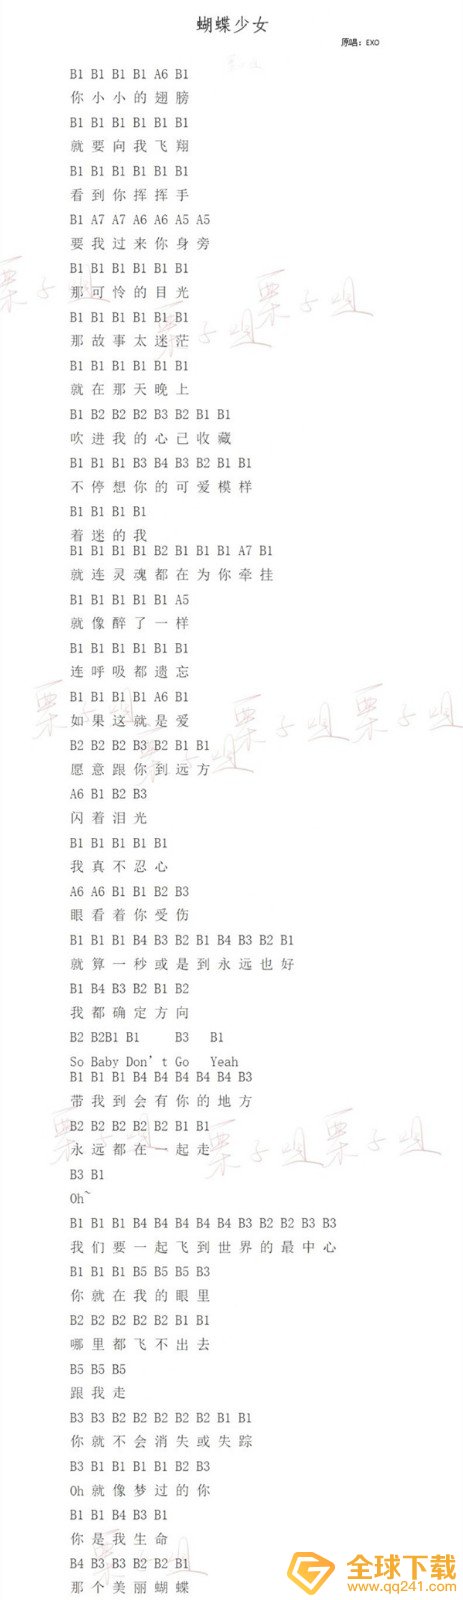 蝴蝶少女
原唱：EXO
B1 B1 B1 B1 A6 B1
你小小的翅膀
B1 B1 B1 B1 B1 B1
就要向我飞翔
B1 B1 B1 B1 B1 B1
看到你挥挥手
B1 A7 A7 A6 A6 A5 A5
要我过来你身旁
B1 B1 B1 B1 B1 B1
那可怜的目光
B1 B1 B1 B1 B1 B1
那故事太迷茫
B1 B1 B1 B1 B1 B1
就在那天晚上
B1 B2 B2 B2 B3 B2 B1 B1
吹进我的心己收藏
B1 B1 B1 B3 B4 B3 B2 B1 B1
不停想你的可爱模样
B1 B1 B1 B1
着迷的我
B1 B1 B1 B1 B2 B1 B1 B1 A7 B1
就连灵魂都在为你牵挂
B1 B1 B1 B1 B1 A5
就像醉了一样
B1 B1 B1 B1 B1 B1
连呼吸都遗忘
B1 B1 B1 B1 A6 B1
如果这就是爱
B2 B2 B2 B3 B2 B1 B1
愿意跟你到远方
A6 B1 B2 B3
闪着泪光
B1 B1 B1 B1 B1
我真不忍心
A6 A6 B1 B1 B2 B3
眼看着你受伤
B1 B1 B1 B4 B3 B2 B1 B4 B3 B2 B1
就算一秒或是到永远也好
B1 B4 B3 B2 B1 B2
我都确定方向
B2 B2B1 B1 B3 B1
So Baby Don't Go Yeah
B1 B1 B1 B4 B4 B4 B4 B4 B3
带我到会有你的地方
B2 B2 B2 B2 B2 B1 B1
永远都在一起走
B3 B1
Oh~
B1 B1 B1 B4 B4 B4 B4 B4 B3 B2 B2 B3 B3
我们要一起飞到世界的最中心
B1 B1 B1 B5 B5 B5 B3
你就在我的眼里
B2 B2 B2 B2 B2 B1 B1
哪里都飞不出去
B5 B5 B5
跟我走
B3 B3 B2 B2 B2 B2 B2 B1 B1
你就不会消失或失踪
B3 B1 B1 B1 B1 B2 B3
Oh 就像梦过的你
B1 B1 B4 B3 B1
你是我生命
B4 B3 B3 B2 B2 B1
那个美丽蝴蝶
栗子姐
栗子姐
栗子姐
栗子姐
栗子姐
栗子姐
栗子姐
栗子姐
栗子姐
栗子姐
栗子姐
全球下载
www.qq241.com